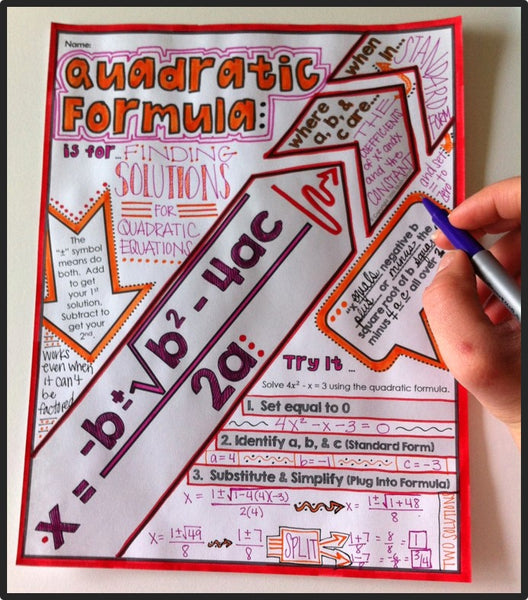 Name:
Quadratic
Formula:
is for... FINDING
SOLUTIONS
FOR
QUADRATIC
EQUATIONS
when
in...
STANDARD
FORM
and set
= to
zero
where
a, b, &
c are...
THE
COEFFICIENTS
OF x² and x
and the
CONSTANT
The
"±" symbol
means do
both. Add
to get
your 1st
solution.
Subtract to
get your
2nd.
works
even when
it can't
be
factored
x = -b ± √b² - 4ac
2a
"x equals negative b
plus or minus the
square root of b squa
minus 4 a c all over 2
Try It ...
Solve 4x² - x = 3 using the quadratic formula.
1. Set equal to 0
4x² - x - 3 = 0
2. Identify a, b, & c (Standard Form)
a = 4 b = -1 c = -3
3. Substitute & Simplify (Plug Into Formula)
x = 1 ± √1-4(4)(-3)
2(4)
x = 1 ± √1+48
8
x = 1 ± √49
8
1 ± 7
8
SPLIT
1+7 = 8 = 1
8 8
1-7 = -6 = -3/4
8 8
TWO SOLUTIONS